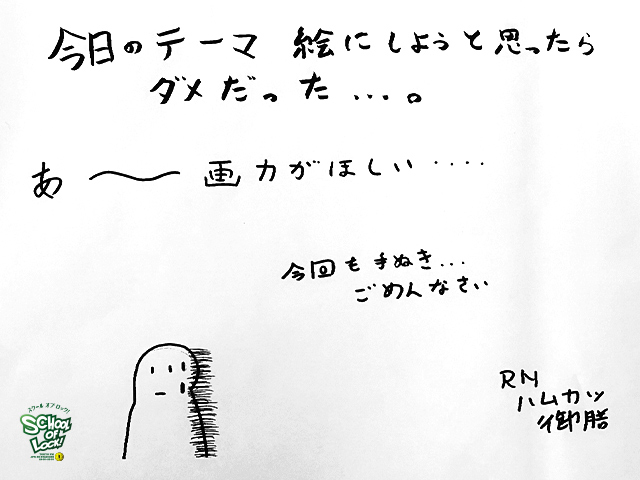 今日のテーマ 絵にしようと思ったら
ダメだった...。
あ〜画力がほしい....
今回も手ぬき...
ごめんなさい
RN
ハムカツ
御膳
スクール オブ ロック!
SCHOOL
OF
LOCK!